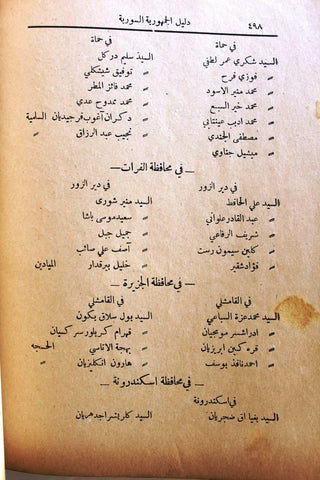 ٤٩٨ دليل الجمهورية السورية
في حماة في حماة
السيد شكري عمر لطفي السيد سليم دركل
« فوزي فرح « توفيق شيشكلي
« محمد منير الاسود « محمد فائز المطر
« محمد خير السبع « محمد ممدوح عدي
« محمد اديب عينتابي « دكران آغوب فرجيديان السلمية
« مصطفى الجندي « نجيب عبد الرزاق «
« ميشيل جناوي
— في محافظة الفرات —
في دير الزور في دير الزور
السيد علي الحافظ السيد منير شورى
« عبد القادر علواني « سعيد موسى باشا
« شريف الرفاعي « جميل جبل
« كلبن سيمون رست « آصف علي صائب
« فؤاد شقير « خليل بيرقدار الميادين
— في محافظة الجزيرة —
في القامشلي في القامشلي
السيد محمد عزة السباعي السيد بول سلاق يكون
« ادراشسر مومجيان « قهرام كريلورسر كسيان
« قره كين ابريزيان « بهجة الاتاسي الحسجه
« احمد نافذ يوسف « هارون انكليزيان «
— في محافظة اسكندرونة —
في اسكندرونة
السيد بغيا اق ضجريان السيد كاربتسراجدهريان